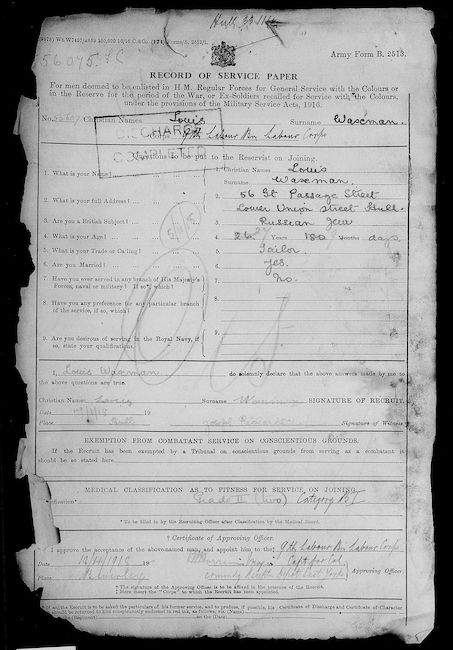 Hull 33
(4476) Wt. W7497/4839 250,000 10/16 C.&Co. (171) Forms/B. 2513/1.
Army Form B. 2513.
56075
RECORD OF SERVICE PAPER
For men deemed to be enlisted in H.M. Regular Forces for General Service with the Colours or
in the Reserve for the period of the War, or Ex-Soldiers recalled for Service with the Colours,
under the provisions of the Military Service Acts, 1916.
No. Christian Names Louis Surname Waxman.
9th Labour Bn Labour Corps
DISCHARGE
COMPLETED
Questions to be put to the Reservist on Joining.
1. What is your Name? 1. Christian Names Louis
Surname Waxman.
2. What is your full Address? 2. 56 Gt Passage Street
Lower Union Street Hull.
3. Are you a British Subject? 3. Russian Jew
4. What is your Age? 4. 26 Years Months days
5. What is your Trade or Calling? 5. Tailor.
6. Are you Married? 6. Yes.
7. Have you ever served in any branch of His Majesty's
Forces, naval or military? If so, which? 7. No.
8. Have you any preference for any particular branch
of the service, if so, which? 8.
9. Are you desirous of serving in the Royal Navy, if
so, state your qualifications. 9.
I, Louis Waxman do solemnly declare that the above answers made by me to
the above questions are true.
Christian Name Louis Surname Waxman SIGNATURE OF RECRUIT.
Date 19
Place Hull Signature of Witness
EXEMPTION FROM COMBATANT SERVICE ON CONSCIENTIOUS GROUNDS.
If the Recruit has been exempted by a Tribunal on conscientious grounds from serving as a combatant it
should be so stated here
MEDICAL CLASSIFICATION AS TO FITNESS FOR SERVICE ON JOINING.
Grade II (two) Category BI
* To be filled in by the Recruiting Officer after Classification by the Medical Board.
† Certificate of Approving Officer.
I approve the acceptance of the above-named man, and appoint him to the‡ 9th Labour Bn Labour Corps
Date 13/4/1918 19 Capt for Col.
Place Approving Officer.
† The signature of the Approving Officer is to be affixed in the presence of the Recruit.
‡ Here insert the "Corps" to which the Recruit has been appointed.
* If any, the Recruit is to be asked the particulars of his former service, and to produce, if possible, his Certificate of Discharge and Certificate of Character